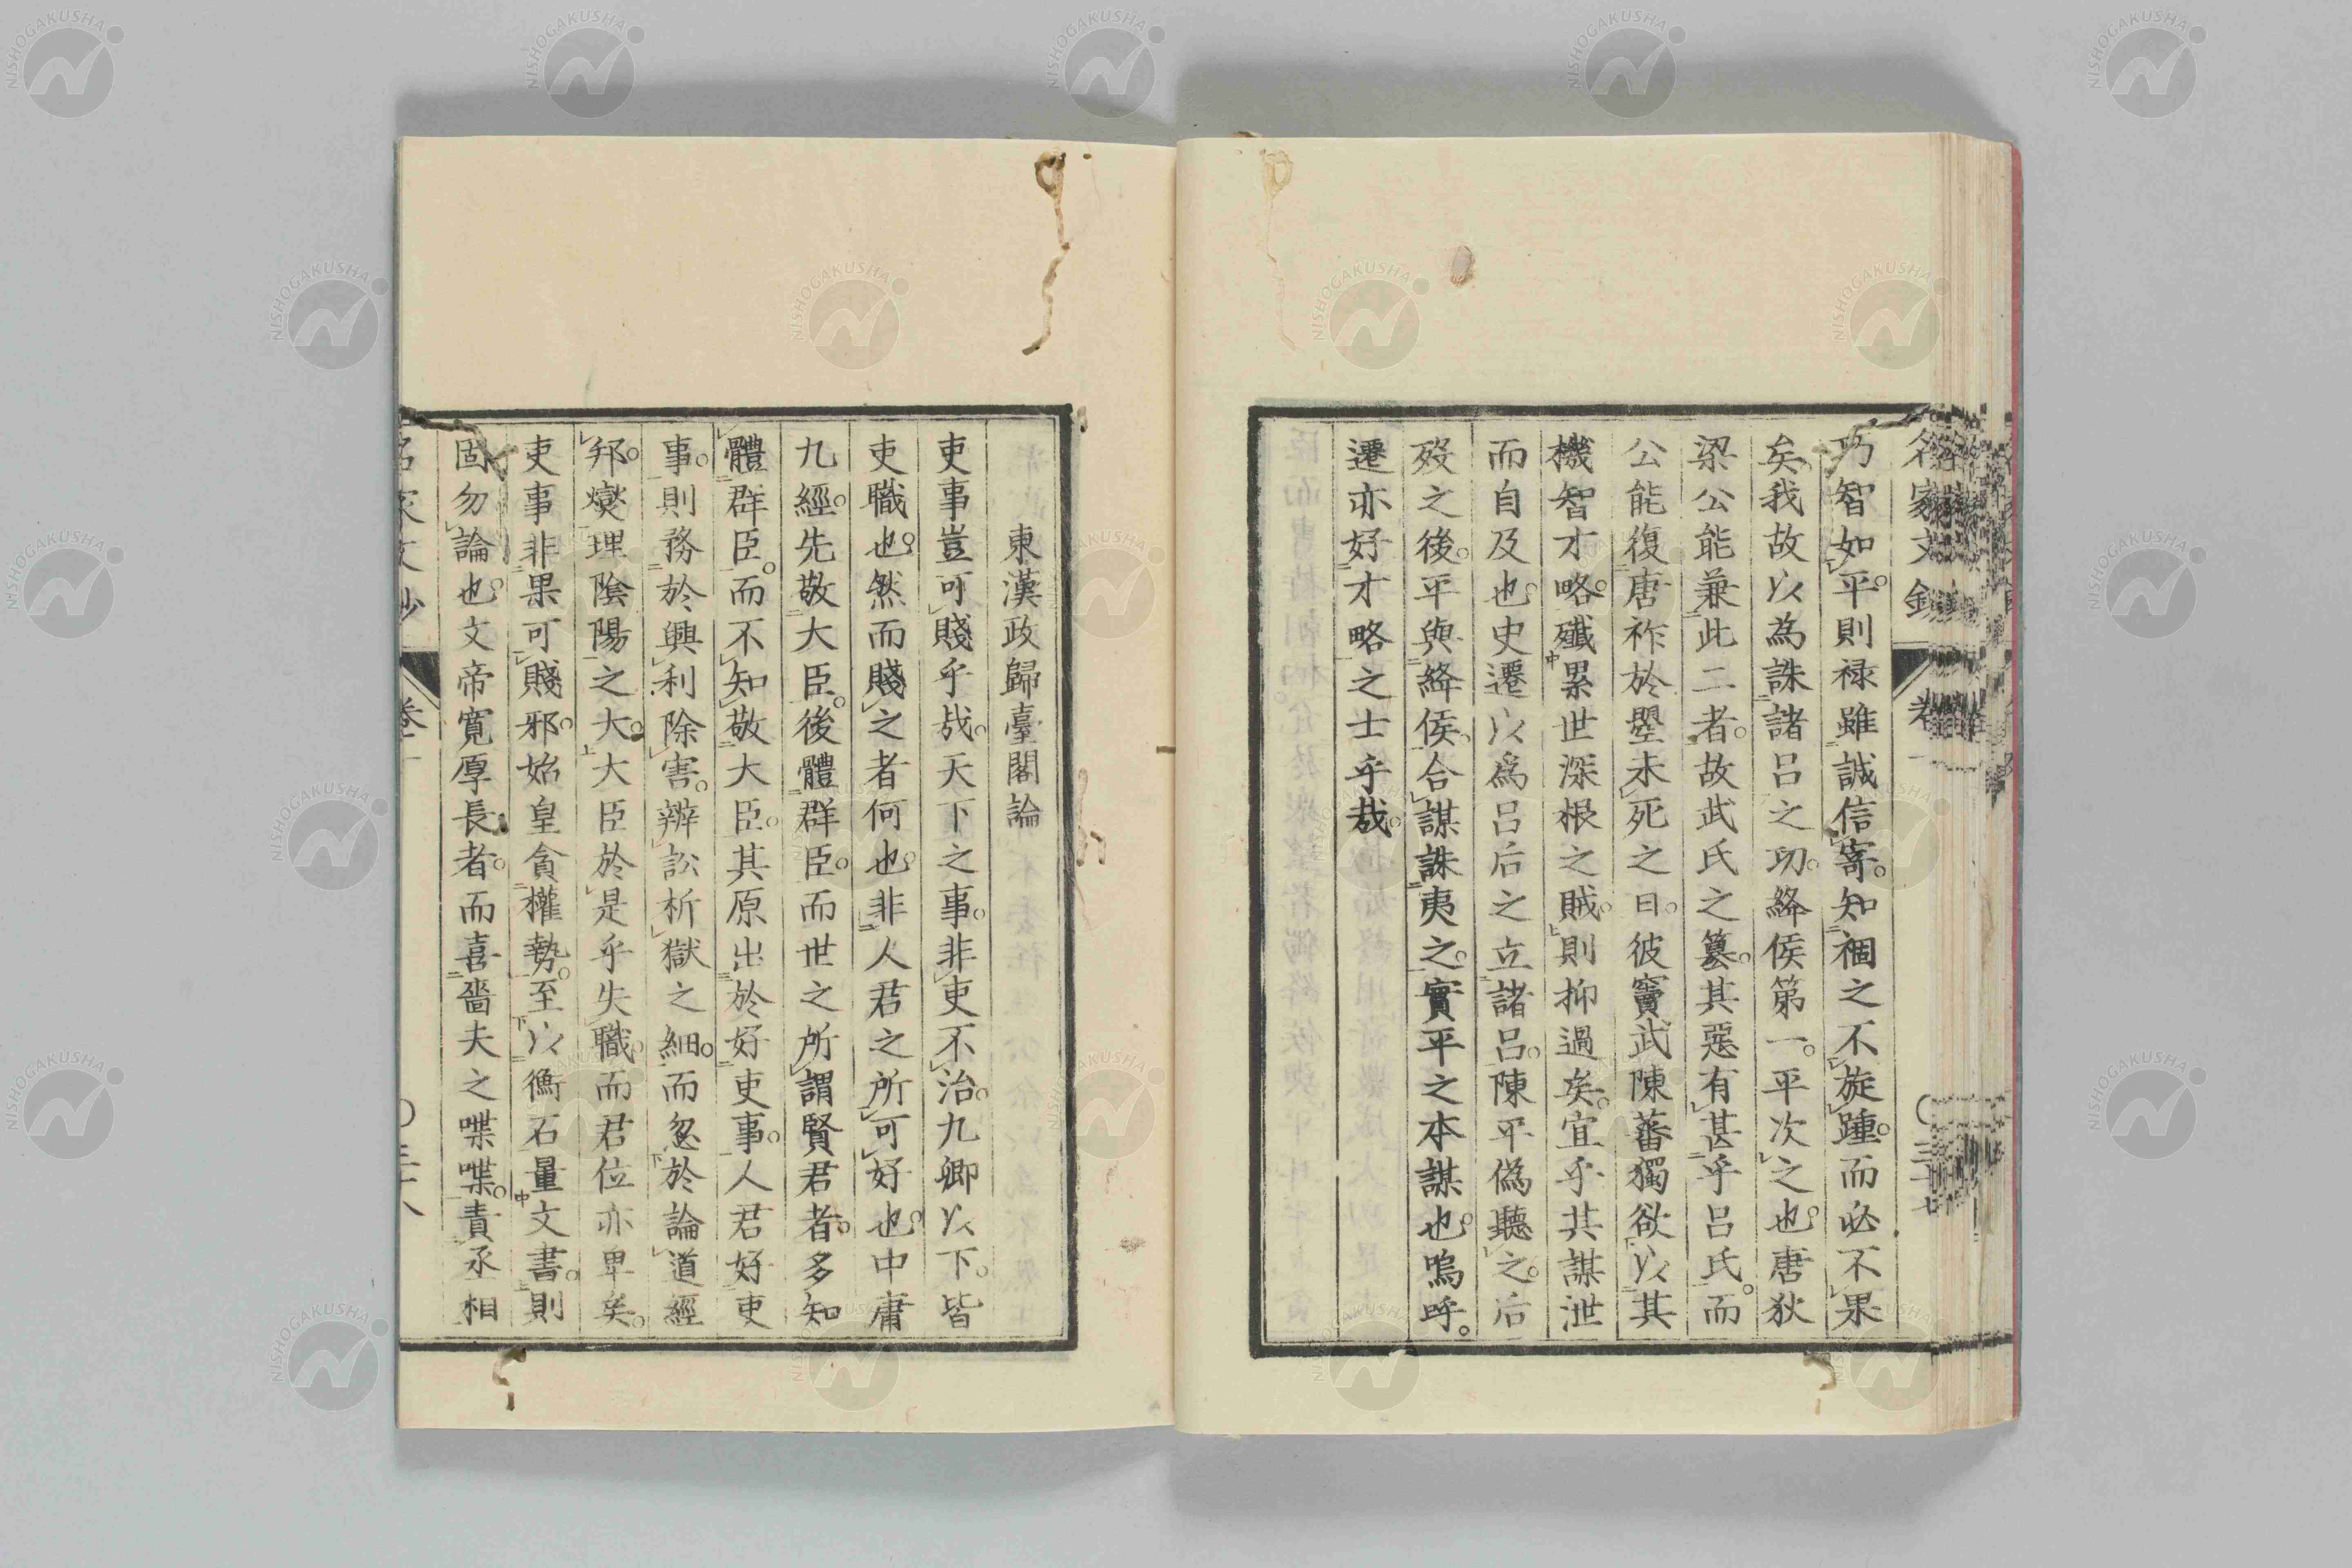 名家文鈔 卷一 〇三十七
巧智如平。則祿雖誠信寄。知禍之不旋踵。而必不果
矣。我故以為誅諸呂之功。絳侯第一。平次之也。唐狄
梁公能兼此二者。故武氏之篡。其惡有甚乎呂氏。而
公能復唐祚於曌未死之日。彼竇武陳蕃獨欲以其
機智才略。殲累世深根之賊。則抑過矣。宜乎其謀泄
而自及也。史遷以為呂后之立諸呂。陳平偽聽之。后
歿之後。平與絳侯。合謀誅夷之。實平之本謀也。嗚呼。
遷亦好才略之士乎哉。
東漢政歸臺閣論
吏事豈可賤乎哉。天下之事。非吏不治。九卿以下。皆
吏職也。然而賤之者何也。非人君之所可好也。中庸
九經。先敬大臣。後體群臣。而世之所謂賢君者。多知
體群臣。而不知敬大臣。其原出於好吏事。人君好吏
事。則務於興利除害。辨訟析獄之細。而忽於論道經
邦。燮理陰陽之大。大臣於是乎失職。而君位亦卑矣。
吏事非果可賤邪。始皇貪權勢。至以衡石量文書。則
固勿論也。文帝寬厚長者。而喜嗇夫之喋喋。責丞相
名家文鈔 卷一 〇三十八